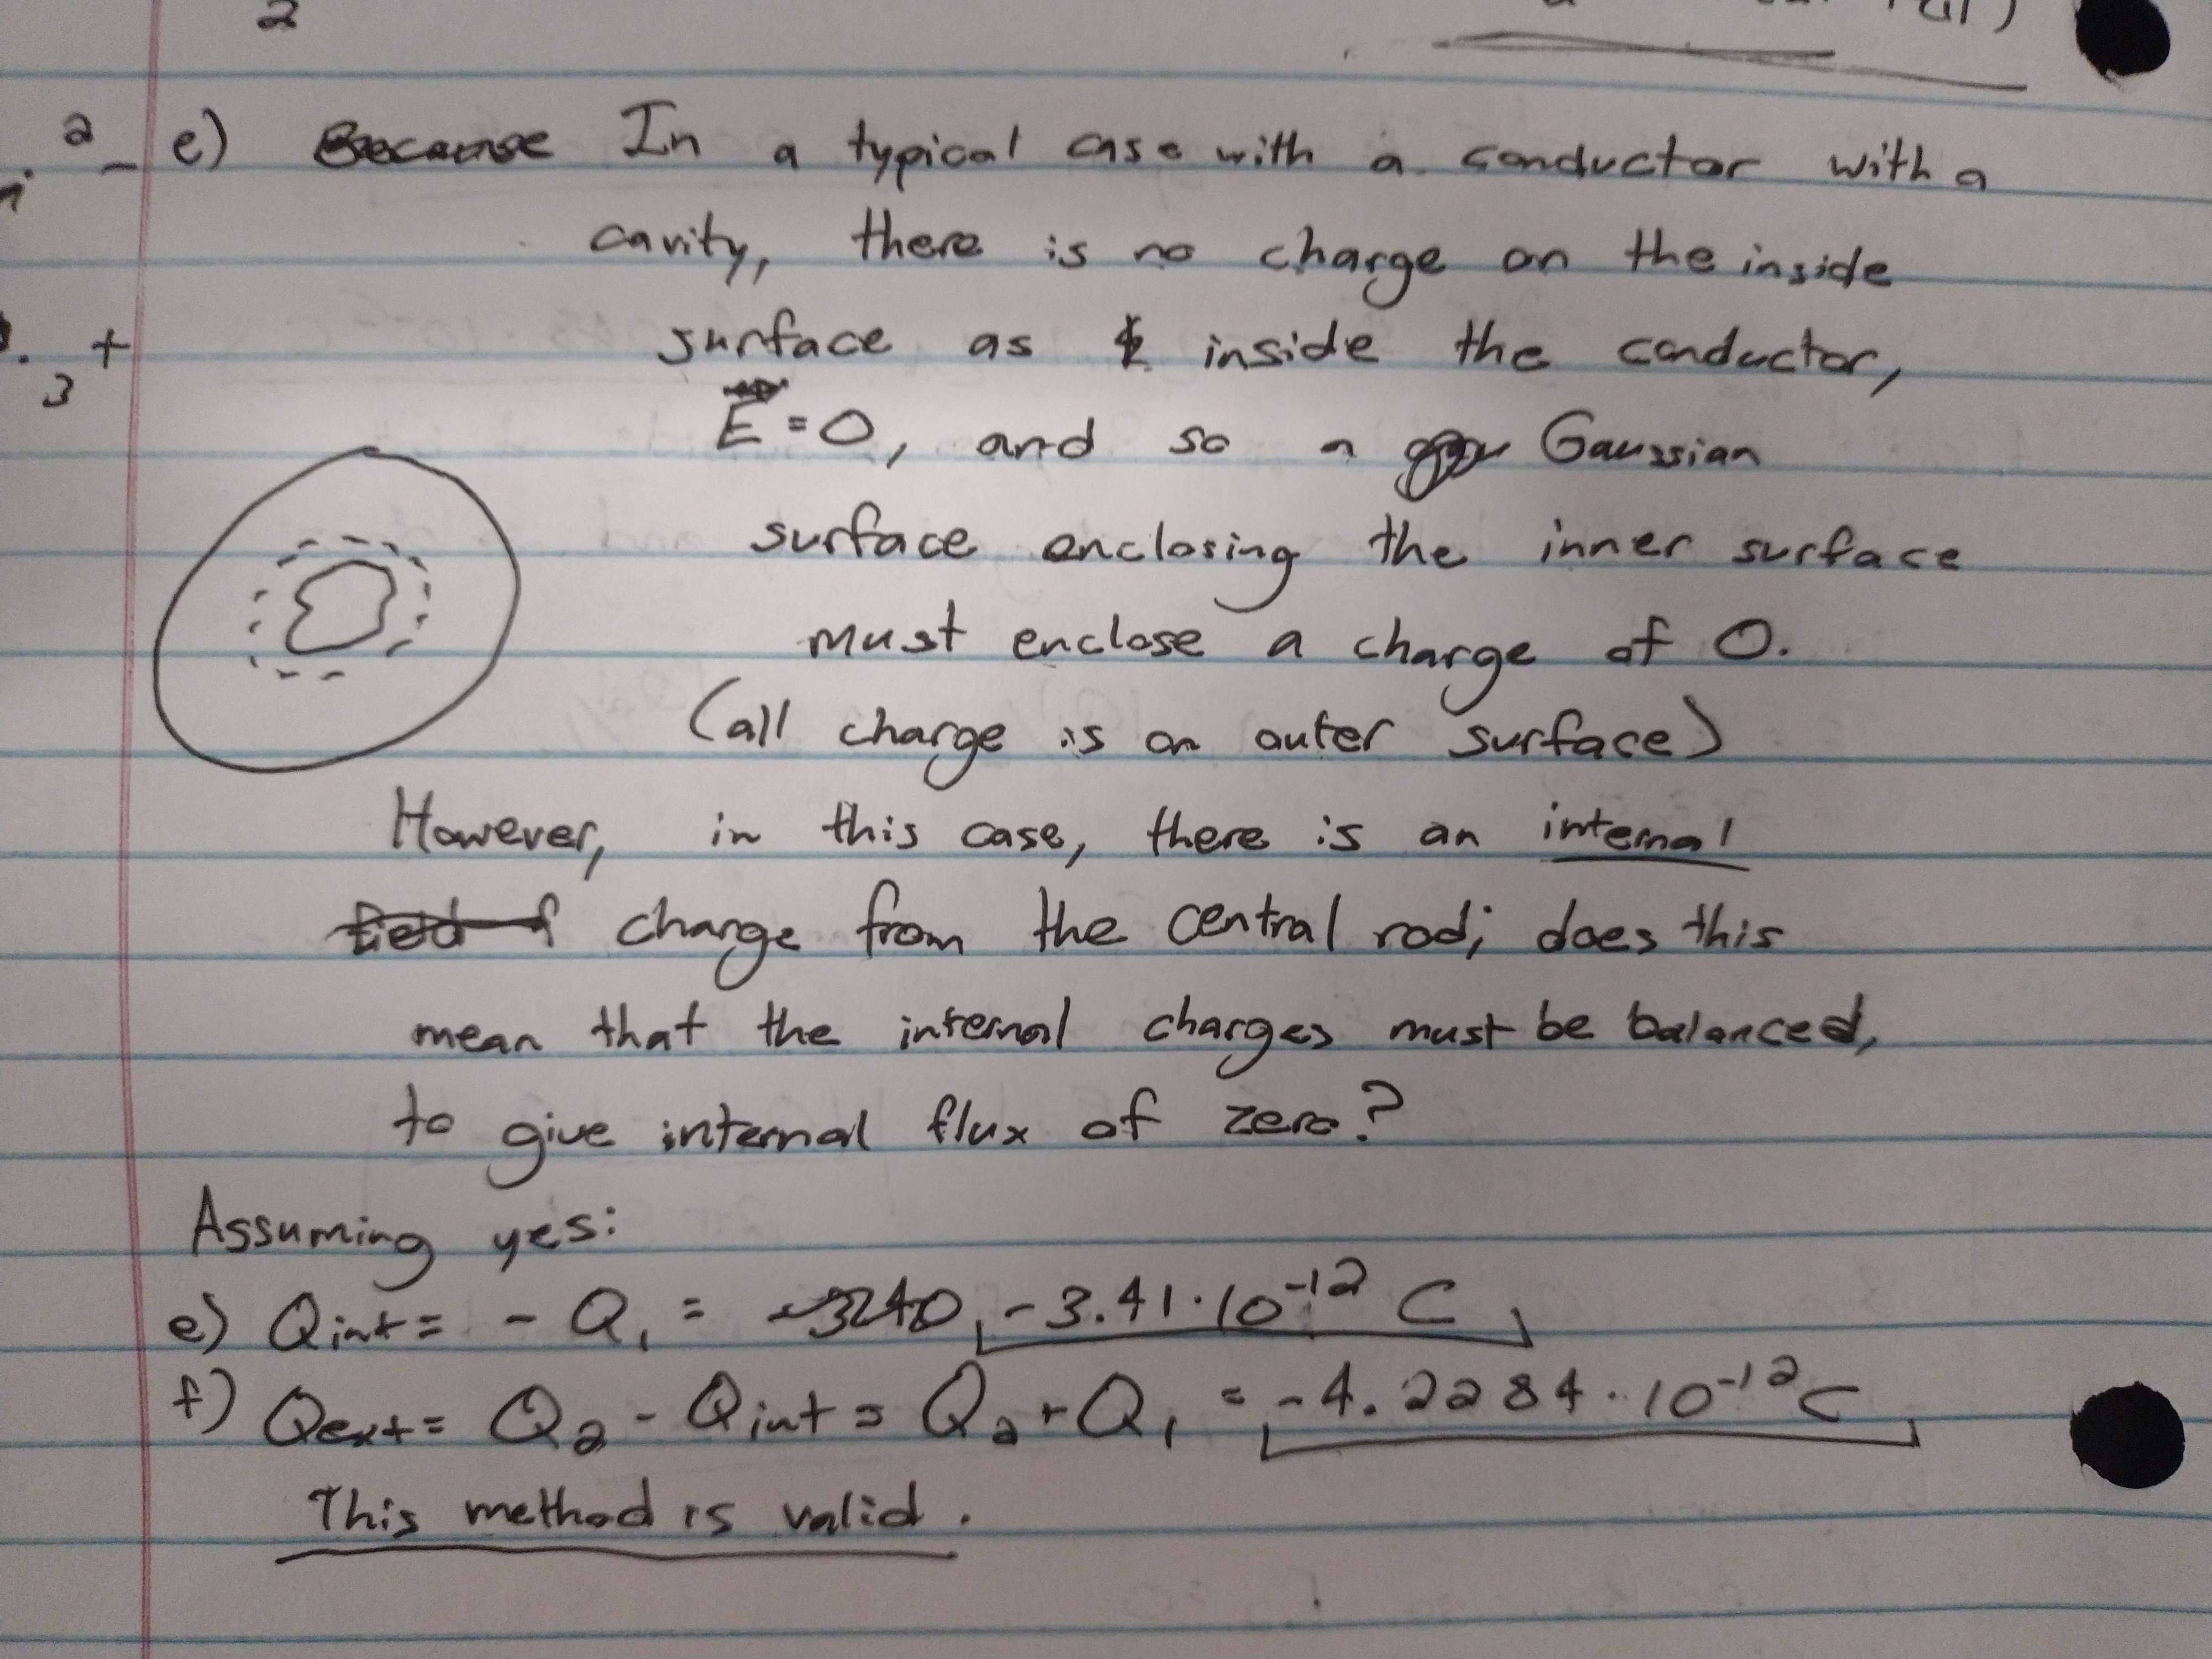 2
2 - e) In a typical case with a conductor with a
cavity, there is no charge on the inside
3 + surface as inside the conductor,
E = 0, and so a Gaussian
surface enclosing the inner surface
must enclose a charge of 0.
(all charge is on outer surface)
However, in this case, there is an internal
charge from the central rod; does this
mean that the internal charges must be balanced,
to give internal flux of zero?
Assuming yes:
e) Qint = - Q1 = -3.41·10^-12 C
f) Qext = Q2 - Qint = Q2 + Q1 = -4.2284·10^-12 C
This method is valid.